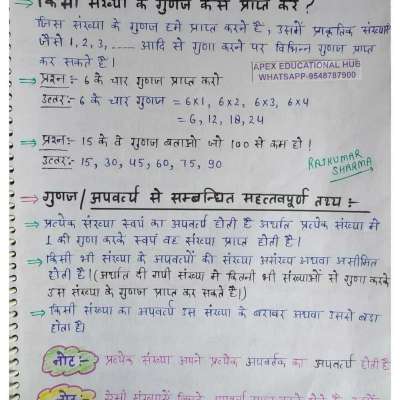 → किसी संख्या के गुणज कैसे प्राप्त करें ?
जिस संख्या के गुणज हमें प्राप्त करने हैं, उसमें प्राकृतिक संख्याओं
जैसे 1, 2, 3, ...... आदि से गुणा करने पर विभिन्न गुणज प्राप्त
कर सकते हैं।
APEX EDUCATIONAL HUB
WHATSAPP-9548787900
⇒ प्रश्न:- 6 के चार गुणज प्राप्त करो
उत्तर:- 6 के चार गुणज = 6×1, 6×2, 6×3, 6×4
= 6, 12, 18, 24
⇒ प्रश्न:- 15 के वे गुणज बताओ जो 100 से कम हो !
उत्तर:- 15, 30, 45, 60, 75, 90
RAJKUMAR
SHARMA
→ गुणज / अपवर्त्य से सम्बन्धित महत्वपूर्ण तथ्य :-
⇒ प्रत्येक संख्या स्वयं का अपवर्त्य होती है अर्थात प्रत्येक संख्या में
1 की गुणा करके स्वयं वह संख्या प्राप्त होती है।
⇒ किसी भी संख्या के अपवर्त्यों की संख्या असंख्य अथवा असीमित
होती है। (अर्थात दी गयी संख्या में कितनी भी संख्याओं से गुणा करके
उस संख्या के गुणज प्राप्त कर सकते हैं।)
⇒ किसी संख्या का अपवर्त्य उस संख्या के बराबर अथवा उससे बड़ा
होता है।
नोट:- प्रत्येक संख्या अपने प्रत्येक अपवर्तक का अपवर्त्य होती है